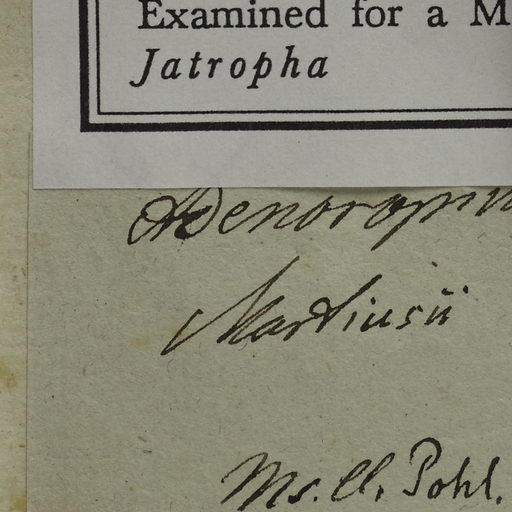 Examined for a M
Jatropha
Adenoropiu
Martiusii
Ms. Cl. Pohl.